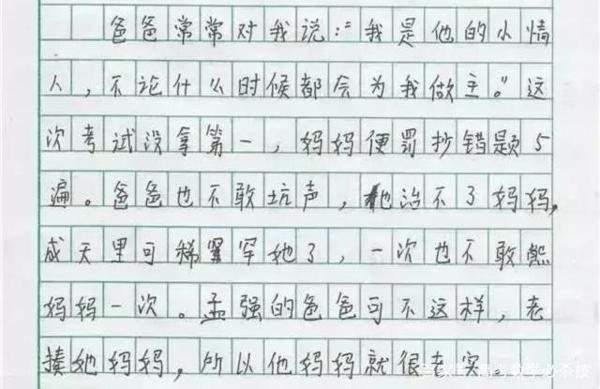 爸爸常常对我说:“我是他的小情
人,不论什么时候都会为我做主。”这
次考试没拿第一,妈妈便罚抄错题5
遍。爸爸也不敢坑声,他治不了妈妈,
成天里可稀罕她了,一次也不敢熊
妈妈一次。孟强的爸爸可不这样,老
揍她妈妈,所以他妈妈就很老实